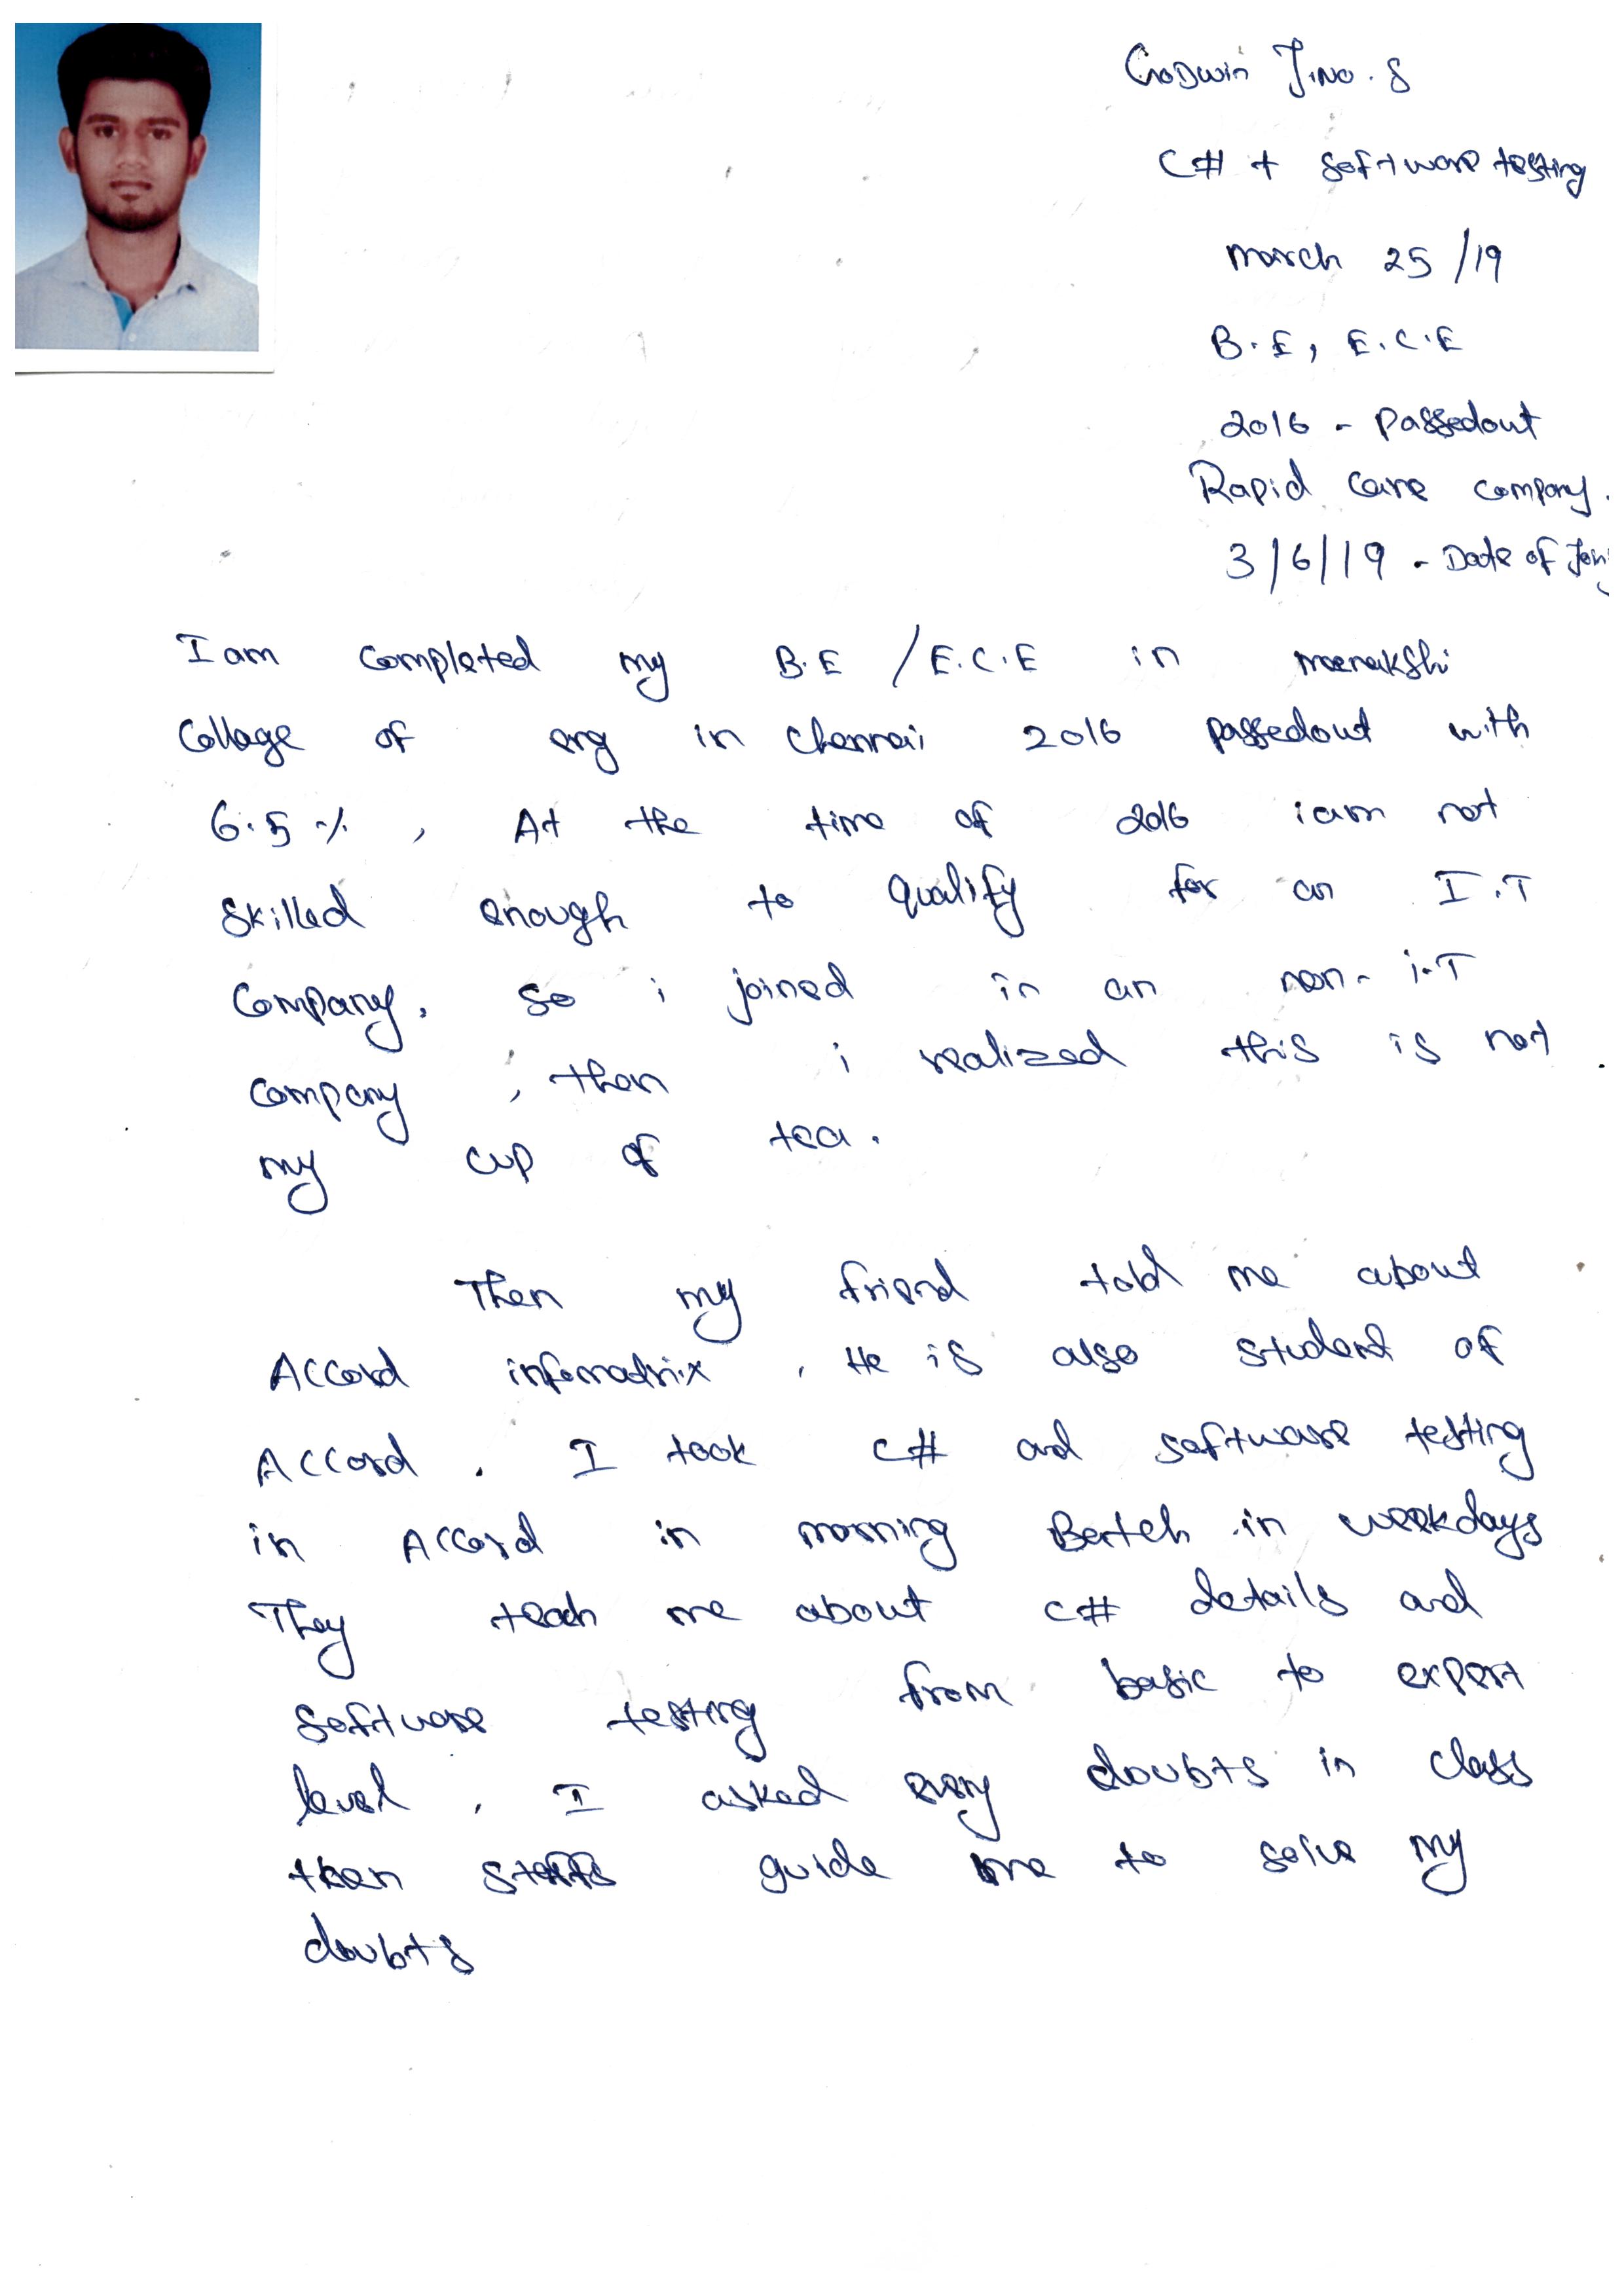 Godwin Jino. S
C# + software testing
march 25/19
B.E, E.C.E
2016 - Passedout
Rapid Care company.
3/6/19 - Date of
I am completed my B.E /E.C.E in meenakshi
College of eng in Chennai 2016 passedout with
6.5 %, At the time of 2016 i am not
skilled enough to qualify for an I.T
Company, so i joined in an non-i.T
company, then i realized this is not
my cup of tea.
Then my friend told me about
Accord infomatrix. He is also student of
Accord. I took C# and software testing
in Accord in morning Batch in weekdays
They teach me about C# details and
software testing from basic to expert
level, I asked every doubts in class
then staffs guide me to solve my
doubts